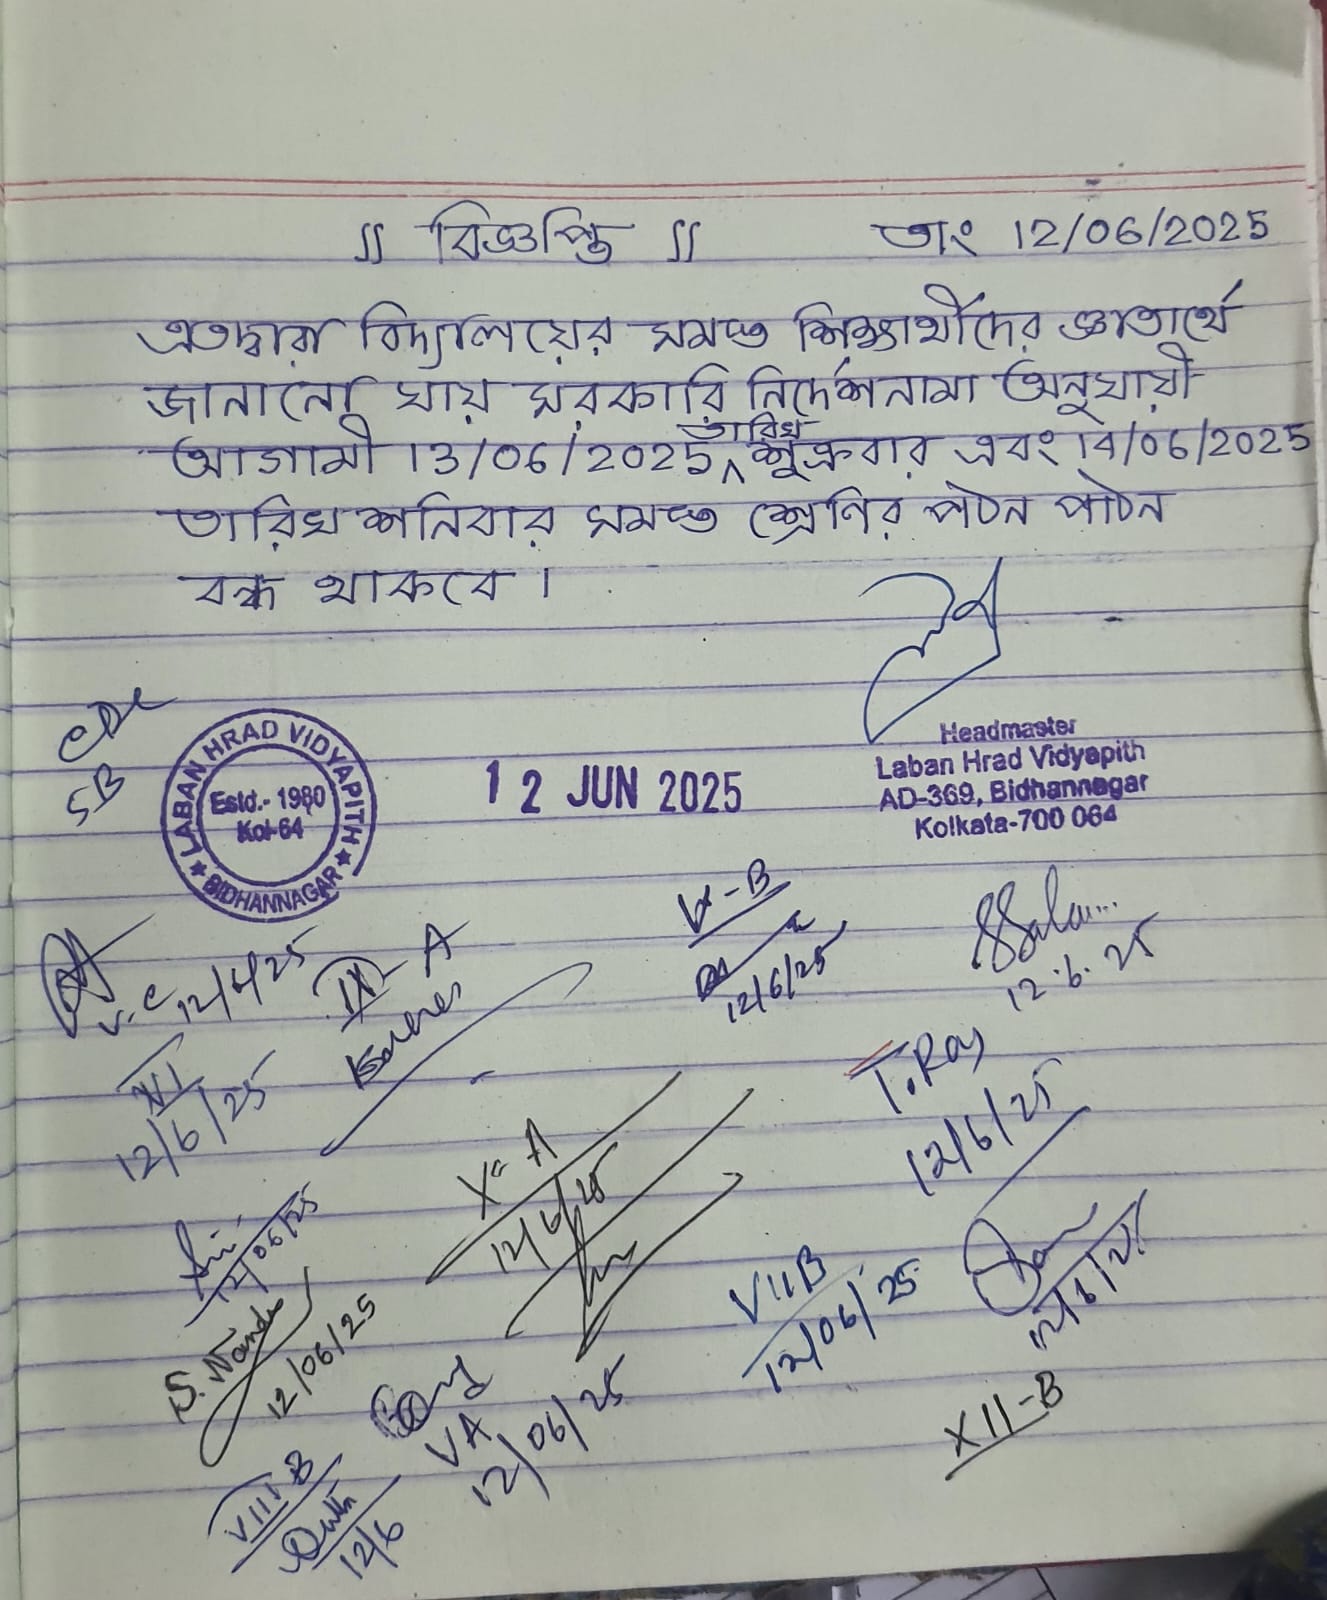 ॥ বিজ্ঞপ্তি ॥ তাং 12/06/2025
এতদ্বারা বিদ্যালয়ের সমস্ত শিক্ষার্থীদের জ্ঞাতার্থে
জানানো যায় সরকারি নির্দেশনামা অনুযায়ী
আগামী 13/06/2025 তারিখ শুক্রবার এবং 14/06/2025
তারিখ শনিবার সমস্ত শ্রেণির পঠন পাঠন
বন্ধ থাকবে।
SB
LABAN HRAD VIDYAPITH
Estd.- 1980
Kol-64
★ BIDHANNAGAR ★
12 JUN 2025
Headmaster
Laban Hrad Vidyapith
AD-369, Bidhannagar
Kolkata-700 064
V-C 12/6/25
IX - A
-B
12/6/25
12.6.25
XI
12/6/25
T. Roy
12/6/25
X - A
12/6/25
12/06/25
S. Nandi
12/06/25
VII B
12/06/25
12/6/25
VA
12/06/25
XII-B
VIII B
12/6